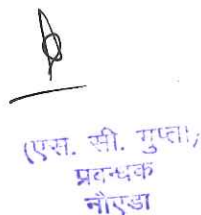 (एस. सी. गुप्ता)
प्रबन्धक
नौएडा